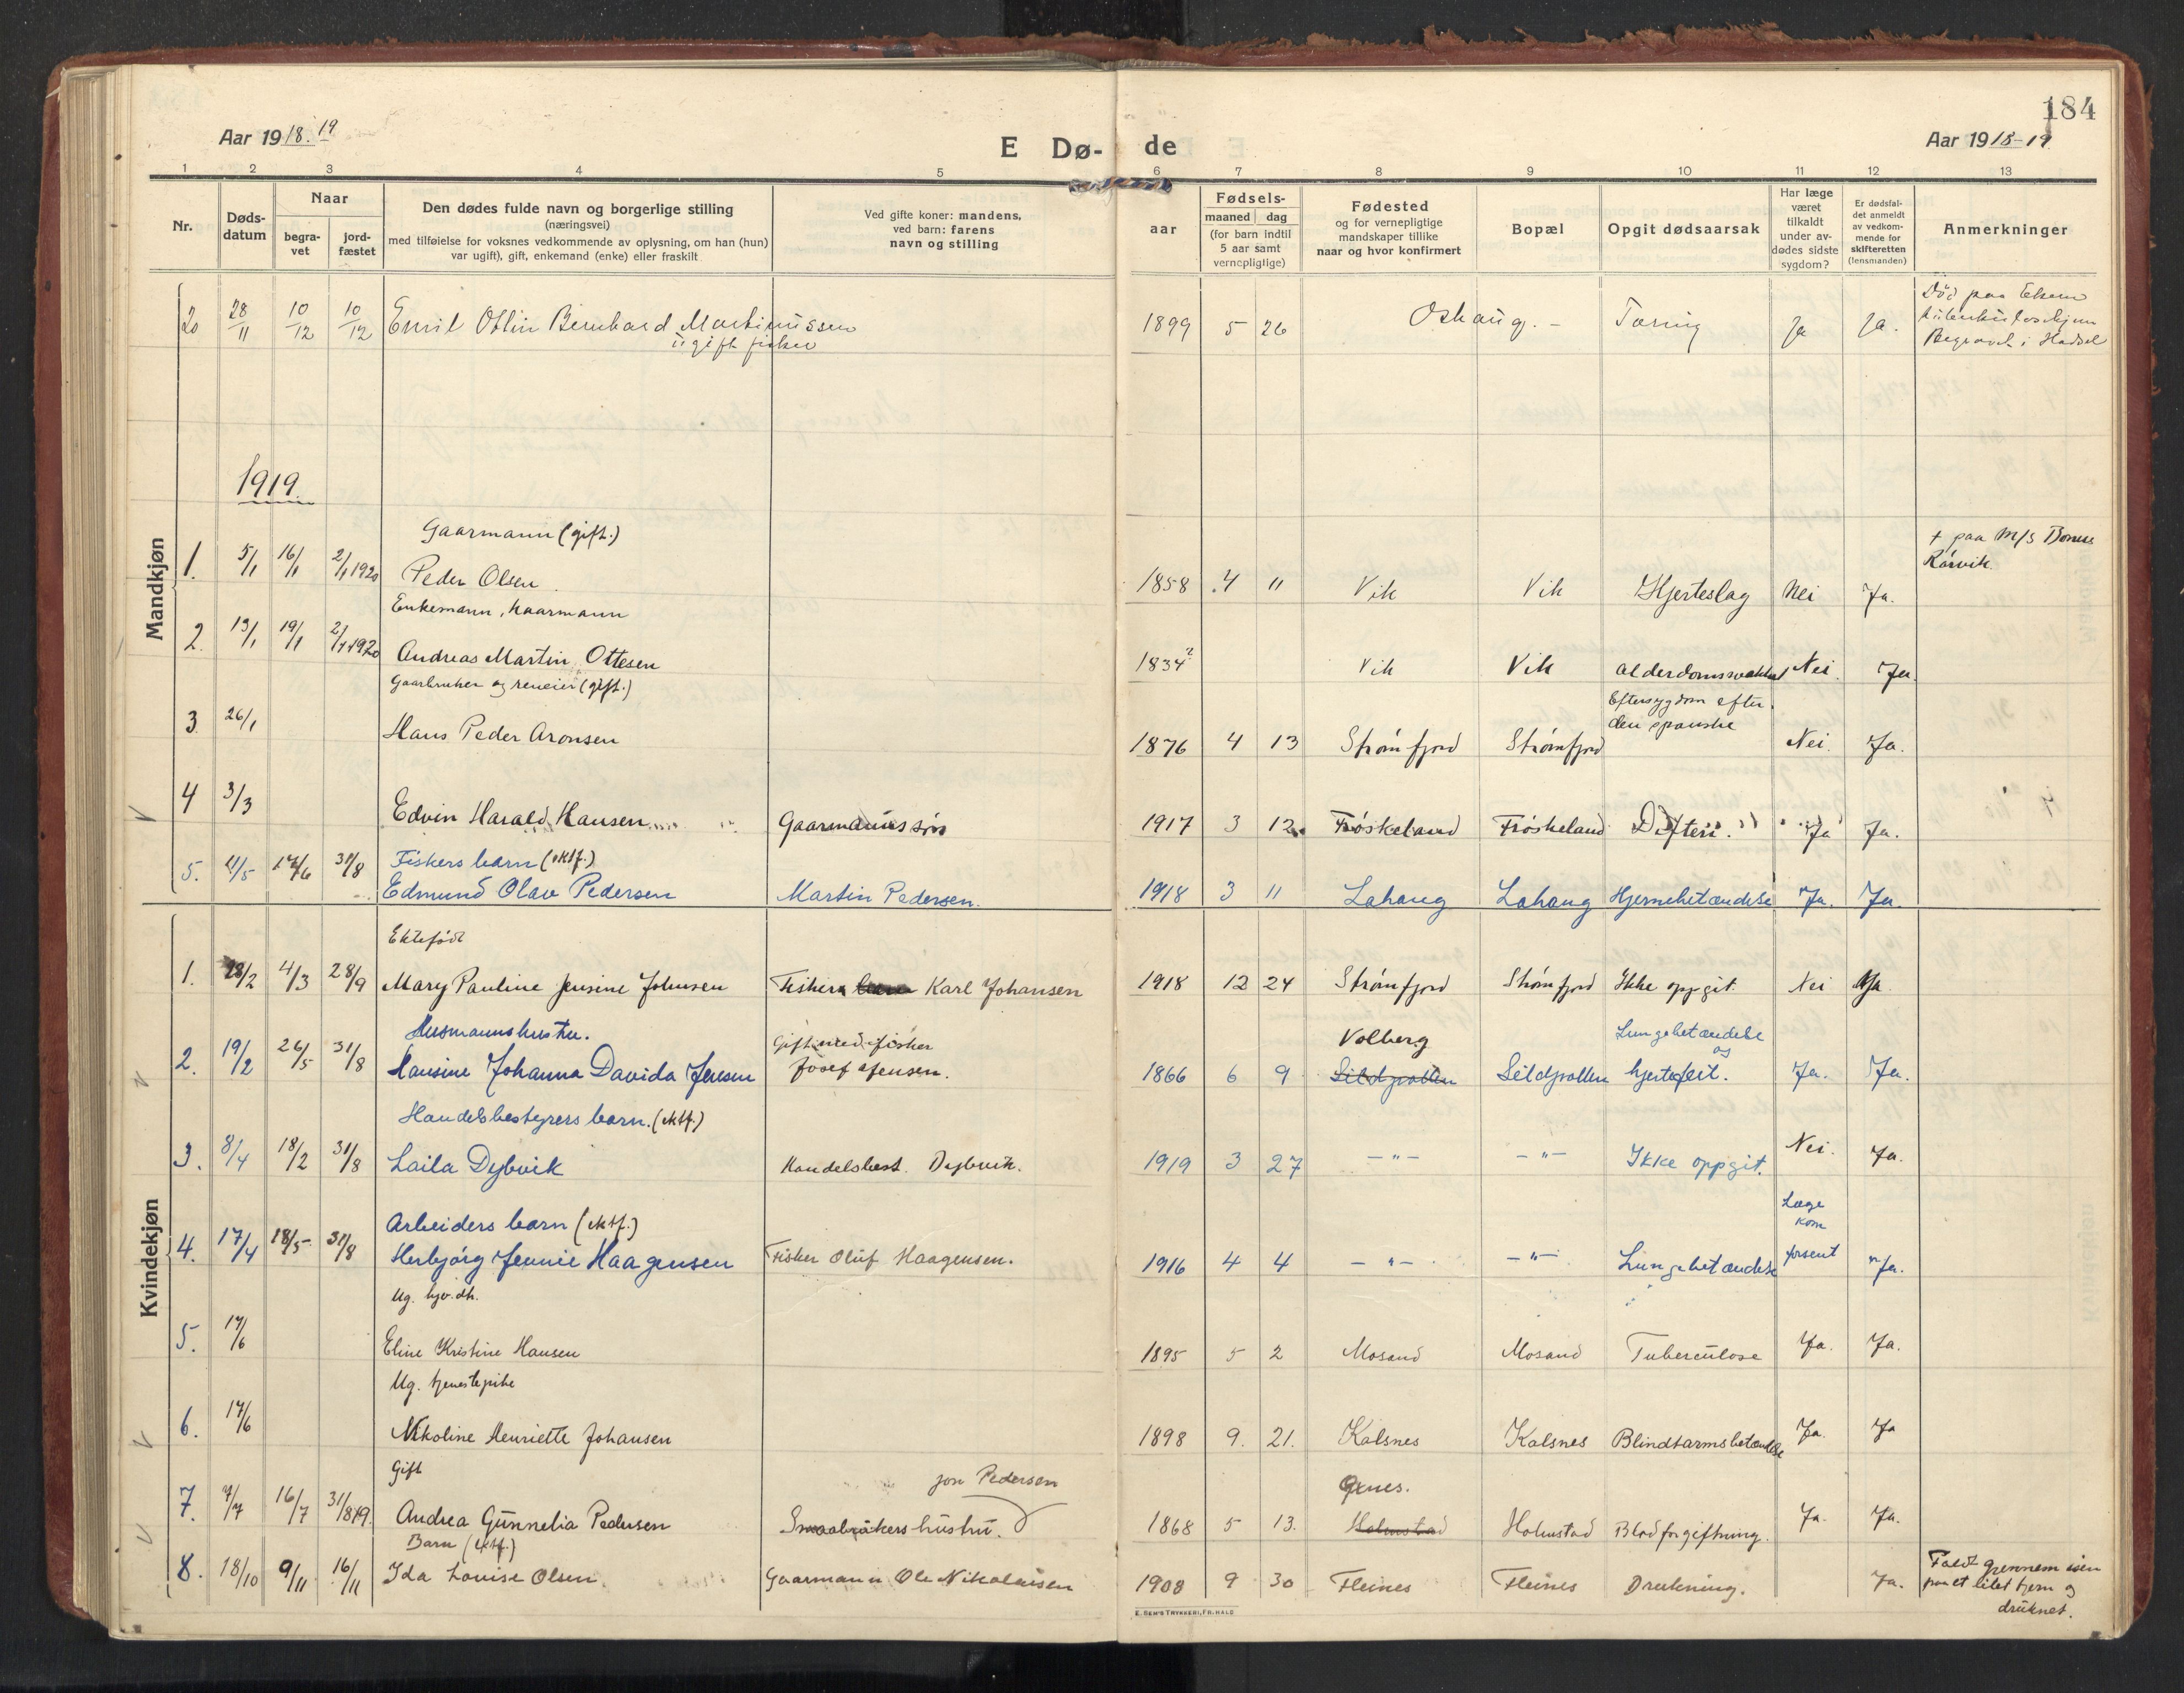 184
Aar 1918.19
E Dø- de
Aar 1918-19
1 2 3 4 5 6 7 8 9 10 11 12 13
Nr.
Døds-
datum
Naar
begra-
vet
jord-
fæstet
Den dødes fulde navn og borgerlige stilling
(næringsvei)
med tilføielse for voksnes vedkommende av oplysning, om han (hun)
var ugift), gift, enkemand (enke) eller fraskilt
Ved gifte koner: mandens,
ved barn: farens
navn og stilling
Fødsels-
aar
maaned dag
(for barn indtil
5 aar samt
vernepligtige)
Fødested
og for vernepligtige
mandskaper tillike
naar og hvor konfirmert
Bopæl
Opgit dødsaarsak
Har læge
været
tilkaldt
under av-
dødes sidste
sygdom?
Er dødsfal-
det anmeldt
av vedkom-
mende for
skifteretten
(lensmanden)
Anmerkninger
Mandkjøn
20 28/11 10/12 10/12 Emil Otlin Bernhard Martinussen 1899 5 26 Oshaug. - Tæring Ja Ja.
ugift fisker
Død paa
Begravet i Hadsel
1919
Gaarmann (gift.)
1. 5/1 16/1 2/1 1920 Peder Olsen 1858 4 11 Vik Vik Hjerteslag Nei Ja.
+ paa M/S Bonus
Rørvik
Enkemann, kaarmann
2. 13/1 19/1 2/1 1920 Andreas Martin Ottesen 1834? Vik Vik alderdomssvakhet Nei. Ja.
Gaarbruker og reneier (gift.)
3. 26/1 Hans Peder Aronsen 1876 4 13 Strømfjord Strømfjord Eftersygdom efter den spanske Nei. Ja.
4 3/3 Edvin Harald Hansen Gaarmanns søn 1917 3 12. Frøskeland Frøskeland Difteri. Ja Ja.
Fiskers barn (ektf.)
5. 4/5 17/6 31/8 Edmund Olav Pedersen Martin Pedersen. 1918 3 11 Lahaug Lahaug Hjernebetændelse Ja. Ja.
Kvindekjøn
Ektefødt
1. 28/2 4/3 28/9 Mary Pauline Jensine Johansen Fisker Karl Johansen 1918 12 24 Strømfjord Strømfjord Ikke oppgit. Nei Ja.
Husmannshustru. Gift med fisker Volberg Lungebetændelse og
2. 19/2 26/5 31/8 Hansine Johanna Davida Jensen Josef Jensen. 1866 6 9 Sildpollen Seildpollen hjertefeil. Ja. Ja.
Handelsbestyrers barn. (ektf.)
3. 8/4 18/2 31/8 Laila Dybvik Handelsbest. Dybvik. 1919 3 27 -"- -"- Ikke oppgit. Nei. Ja.
Arbeiders barn (ektf.) Læge kom
4. 17/4 18/5 31/8 Herbjørg Jennie Haagensen Fisker Oluf Haagensen. 1916 4 4 -"- -"- Lungebetændelse forsent Ja.
Ug. hjv. dh.
5. 14/6 Eline Kristine Hansen 1895 5 2 Mosand Mosand Tuberculose Ja. Ja.
Ug. tjenestepike
6. 14/6 Nikoline Henriette Johansen 1898 9. 21. Kalsnes Kalsnes Blindtarmsbetændelse Ja. Ja
Gift Jon Pedersen Øxnes.
7. 7/7 16/7 31/8 19. Andrea Gunnelia Pedersen Smaabrukers hustru. 1868 5 13. Holmstad Holmstad Blodforgiftning. Ja. Ja.
Barn (ektf.)
8. 18/10 9/11 16/11 Ida Louise Olsen Gaarmann Ole Nikolaisen 1908 9 30 Fleines Fleines Drukning. Ja.
Faldt gjennem isen
paa et litet tjern og
druknet.
E. SEM'S TRYKKERI, FR.HALD